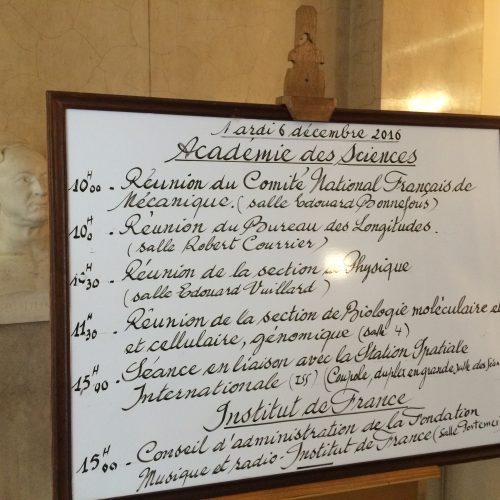 Mardi 6 décembre 2016
Académie des Sciences
10H00 - Réunion du Comité National Français de
Mécanique. (salle Edouard Bonnefous)
10H0 - Réunion du Bureau des Longitudes.
(salle Robert Courrier)
10H30 - Réunion de la section de Physique
(salle Edouard Vuillard)
11H30 - Réunion de la section de Biologie moléculaire et
et cellulaire, génomique (salle 4)
15H00 - Séance en liaison avec la Station Spatiale
Internationale (ISS) (Coupole, duplex en grande salle des
Institut de France
15H00 - Conseil d'administration de la Fondation
Musique et radio - Institut de France (salle